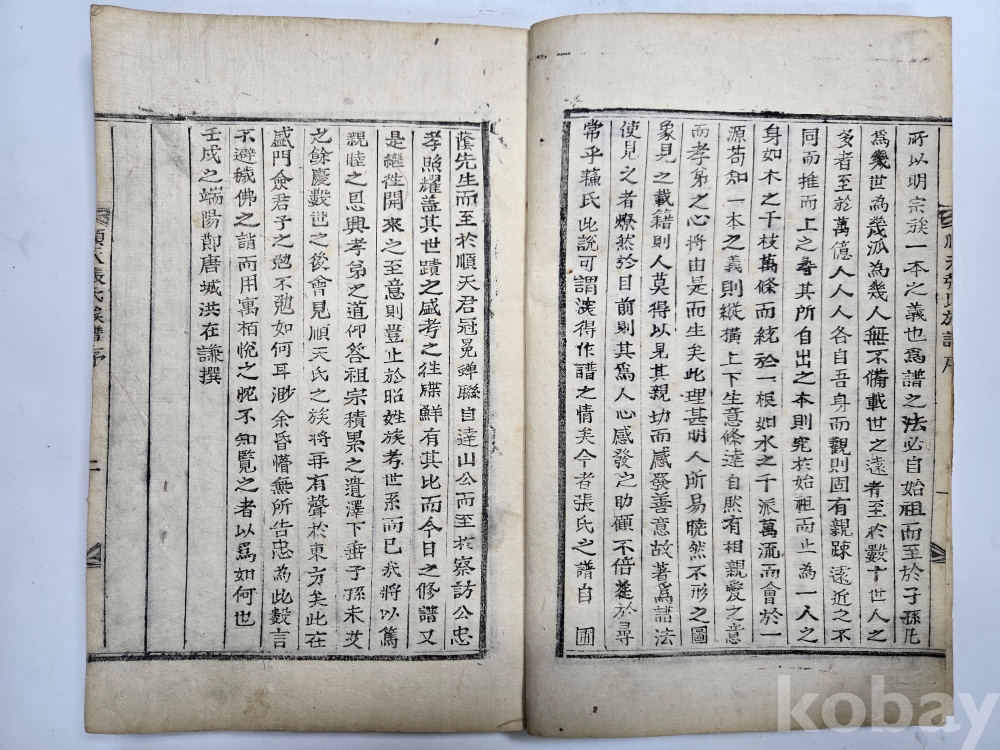 所以明宗族一本之義也爲譜之法必自始祖而至於子孫凡
爲幾世爲幾派爲幾人無不備載世之遠者至於數十世人之
多者至於萬億人人人各自吾身而觀則固有親踈遠近之不
同而推而上之尋其所自出之本則究於始祖而止為一人之
身如木之千枝萬條而統於一根如水之千派萬流而會於一
源苟知一本之義則縱橫上下生意條達自然有相親愛之意
而孝弟之心將由是而生矣此理甚明人所易曉然不形之圖
象見之載籍則人莫得以見其親功而感發善意故著爲譜法
使見之者燎然於目前則其爲人心感發之助顧不倍蓰於尋
常乎蘓氏此說可謂深得作譜之情矣今者張氏之譜自
順天張氏族譜序
一
蔭先生而至於順天君冠冕蟬聯自達山公而至於察訪公忠
孝照耀盖其世蹟之盛考之往牒鮮有其比而今日之修譜又
是繼徃開來之至意則豈止於昭姓族考世系而已我將以篤
親睦之恩興孝弟之道仰答祖宗積累之遺澤下垂子孫未艾
之餘慶數世之後會見順天氏之族將再有聲於東方矣此在
盛門僉君子之勉不勉如何耳渺余昏懵無所告忠為此數言
不避穢佛之誚而用寓栢悅之忱不知覽之者以爲如何也
壬戌之端陽節唐城洪在謙撰
順天張氏族譜序
二
kobay